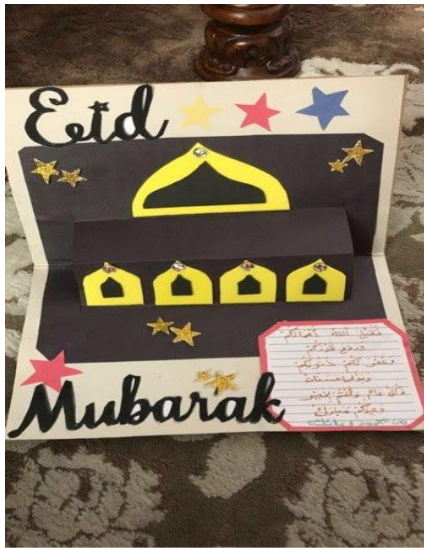 Eid
Mubarak
تقبل الله أعمالكم
ورفع قدركم
وغفر لكم ذنوبكم
وكل عام وأنتم بخير
وعيدكم مبارك